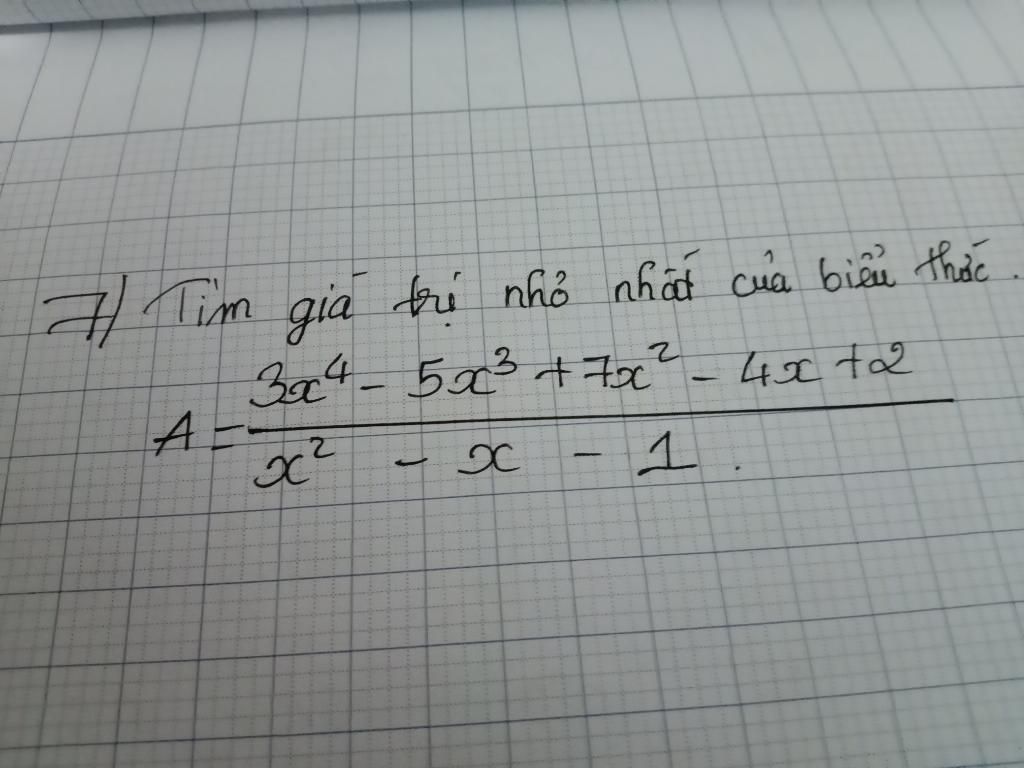 7) Tìm giá trị nhỏ nhất của biểu thức.
A = \frac{3x^4 - 5x^3 + 7x^2 - 4x + 2}{x^2 - x - 1}.